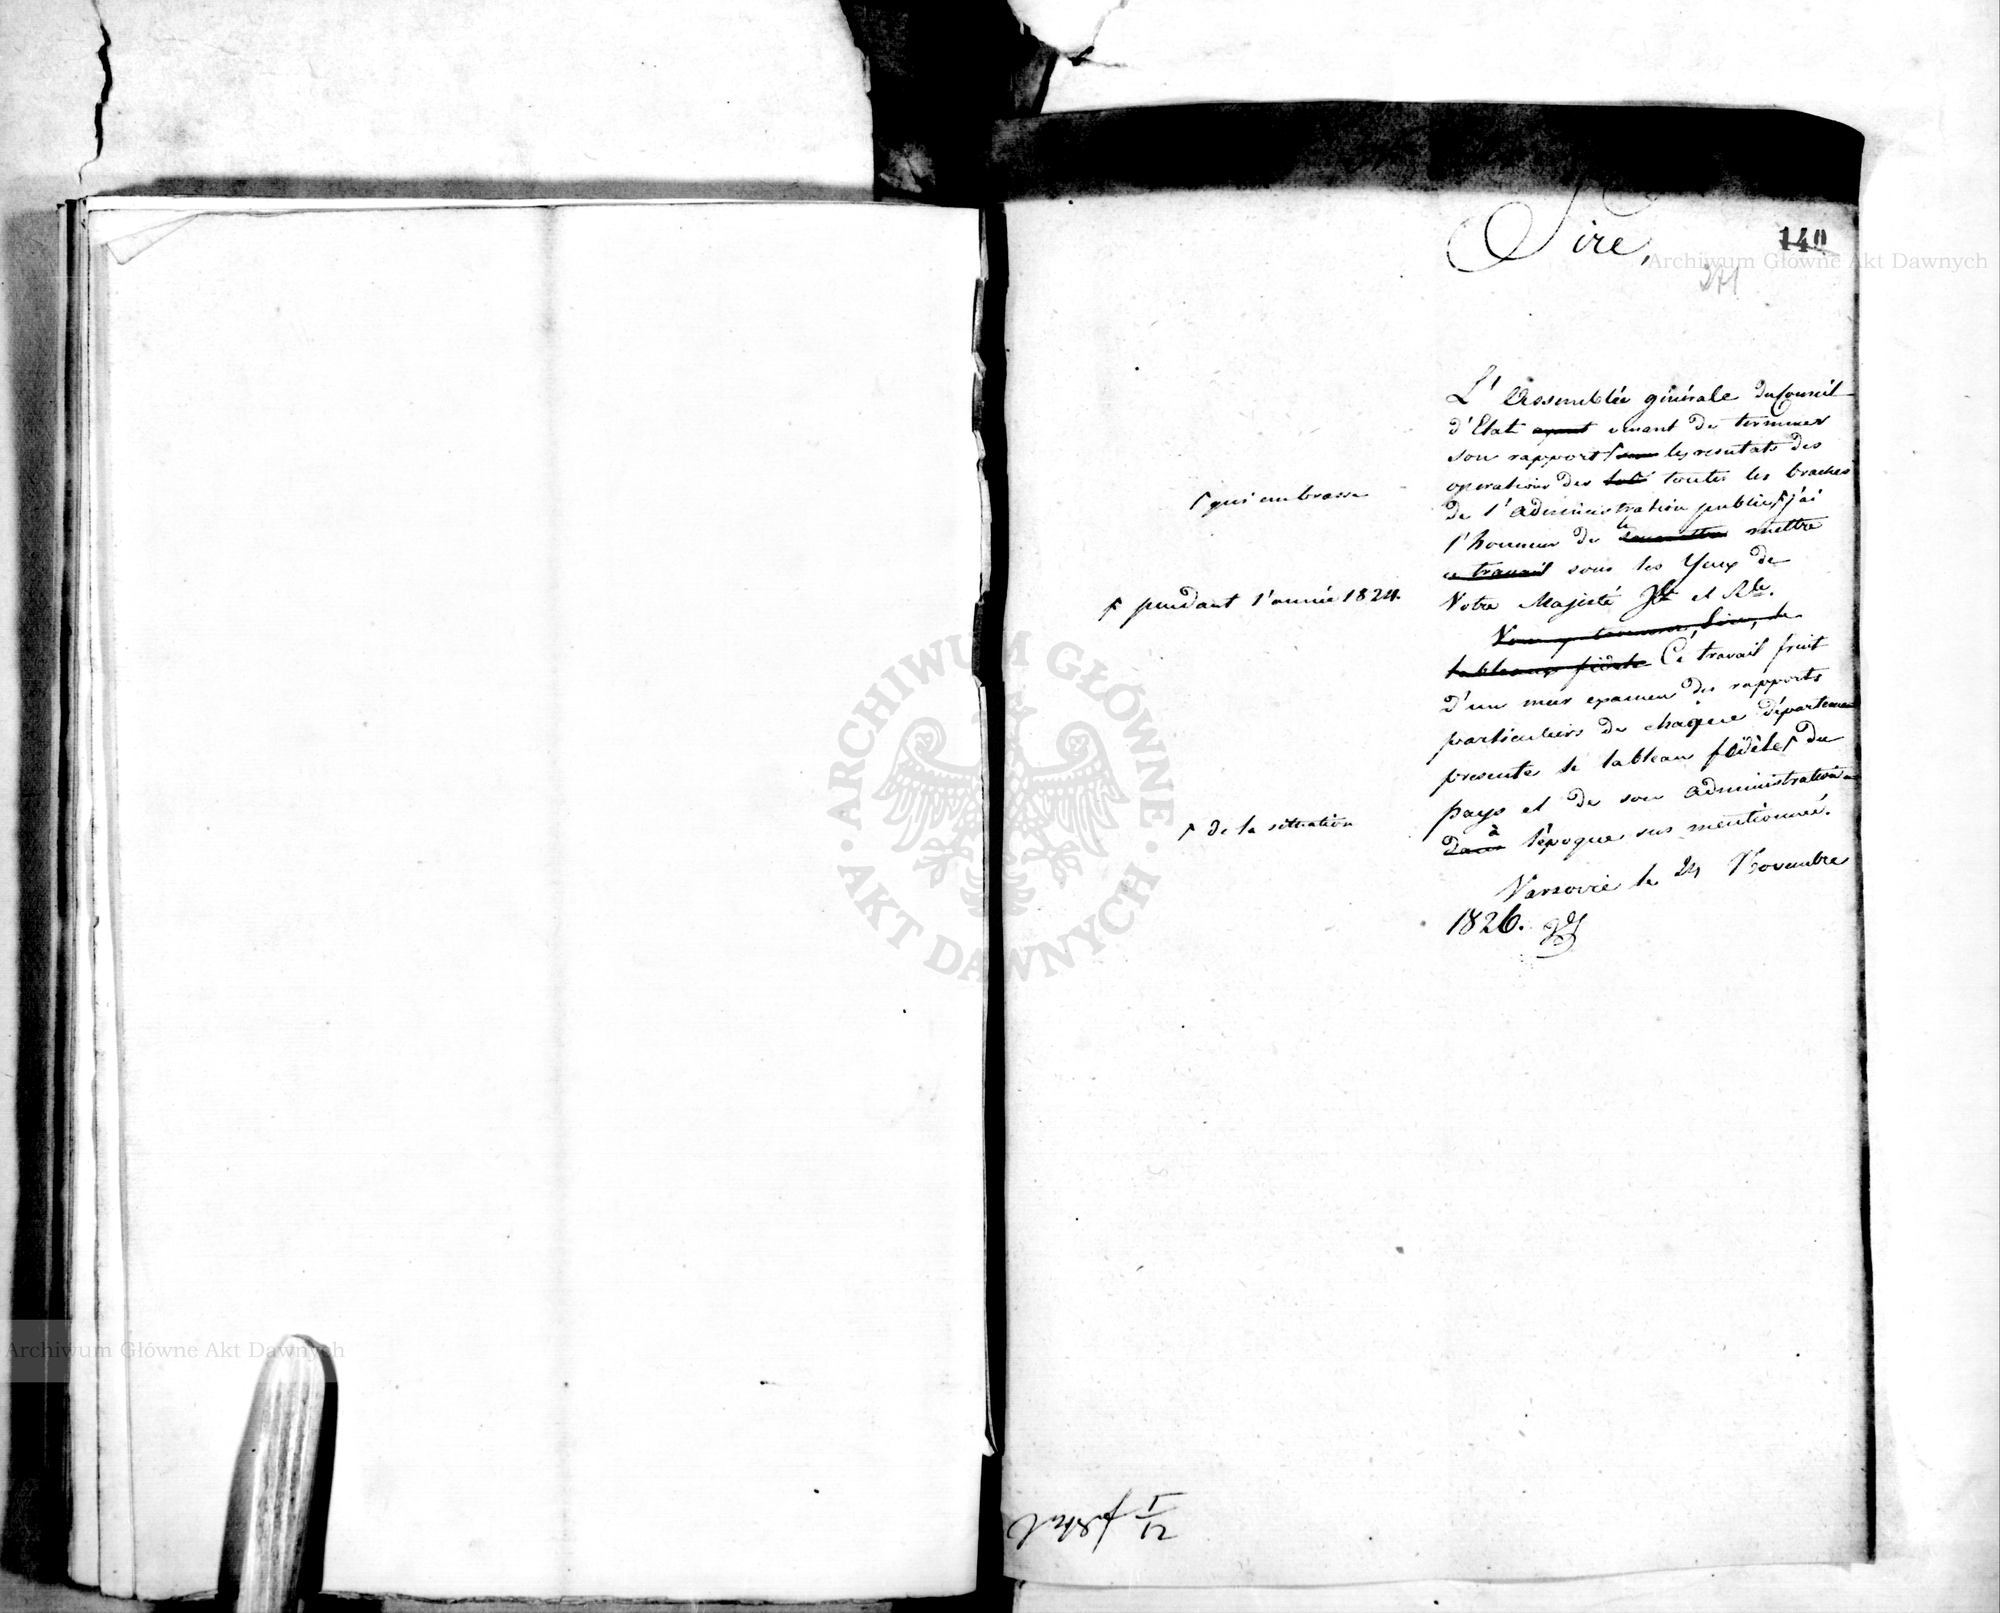 Sire,
140
271
L'Assemblée générale du Conseil
d'Etat ayant venant de terminer
son rapport les resultats des
operations des toutes les braches
de l'administration public j'ai
l'honneur de le soumettre mettre
ce travail sous les Yeux de
Votre Majesté Jle et Rle.
Vous y trouverez, Sire, le
tableau fidèle Ce travail fruit
d'un mur examen des rapports
particuliers de chaque département
presente le tableau fidèle du
pays et de son administration
dans à l'époque sus mentionnée.
Varsovie le 24 Novembre
1826.
qui embrasse
pendant l'année 1824.
de la situation
I
12
Archiwum Główne Akt Dawnych
Archiwum Główne Akt Dawnych
ARCHIWUM GŁÓWNE
AKT DAWNYCH